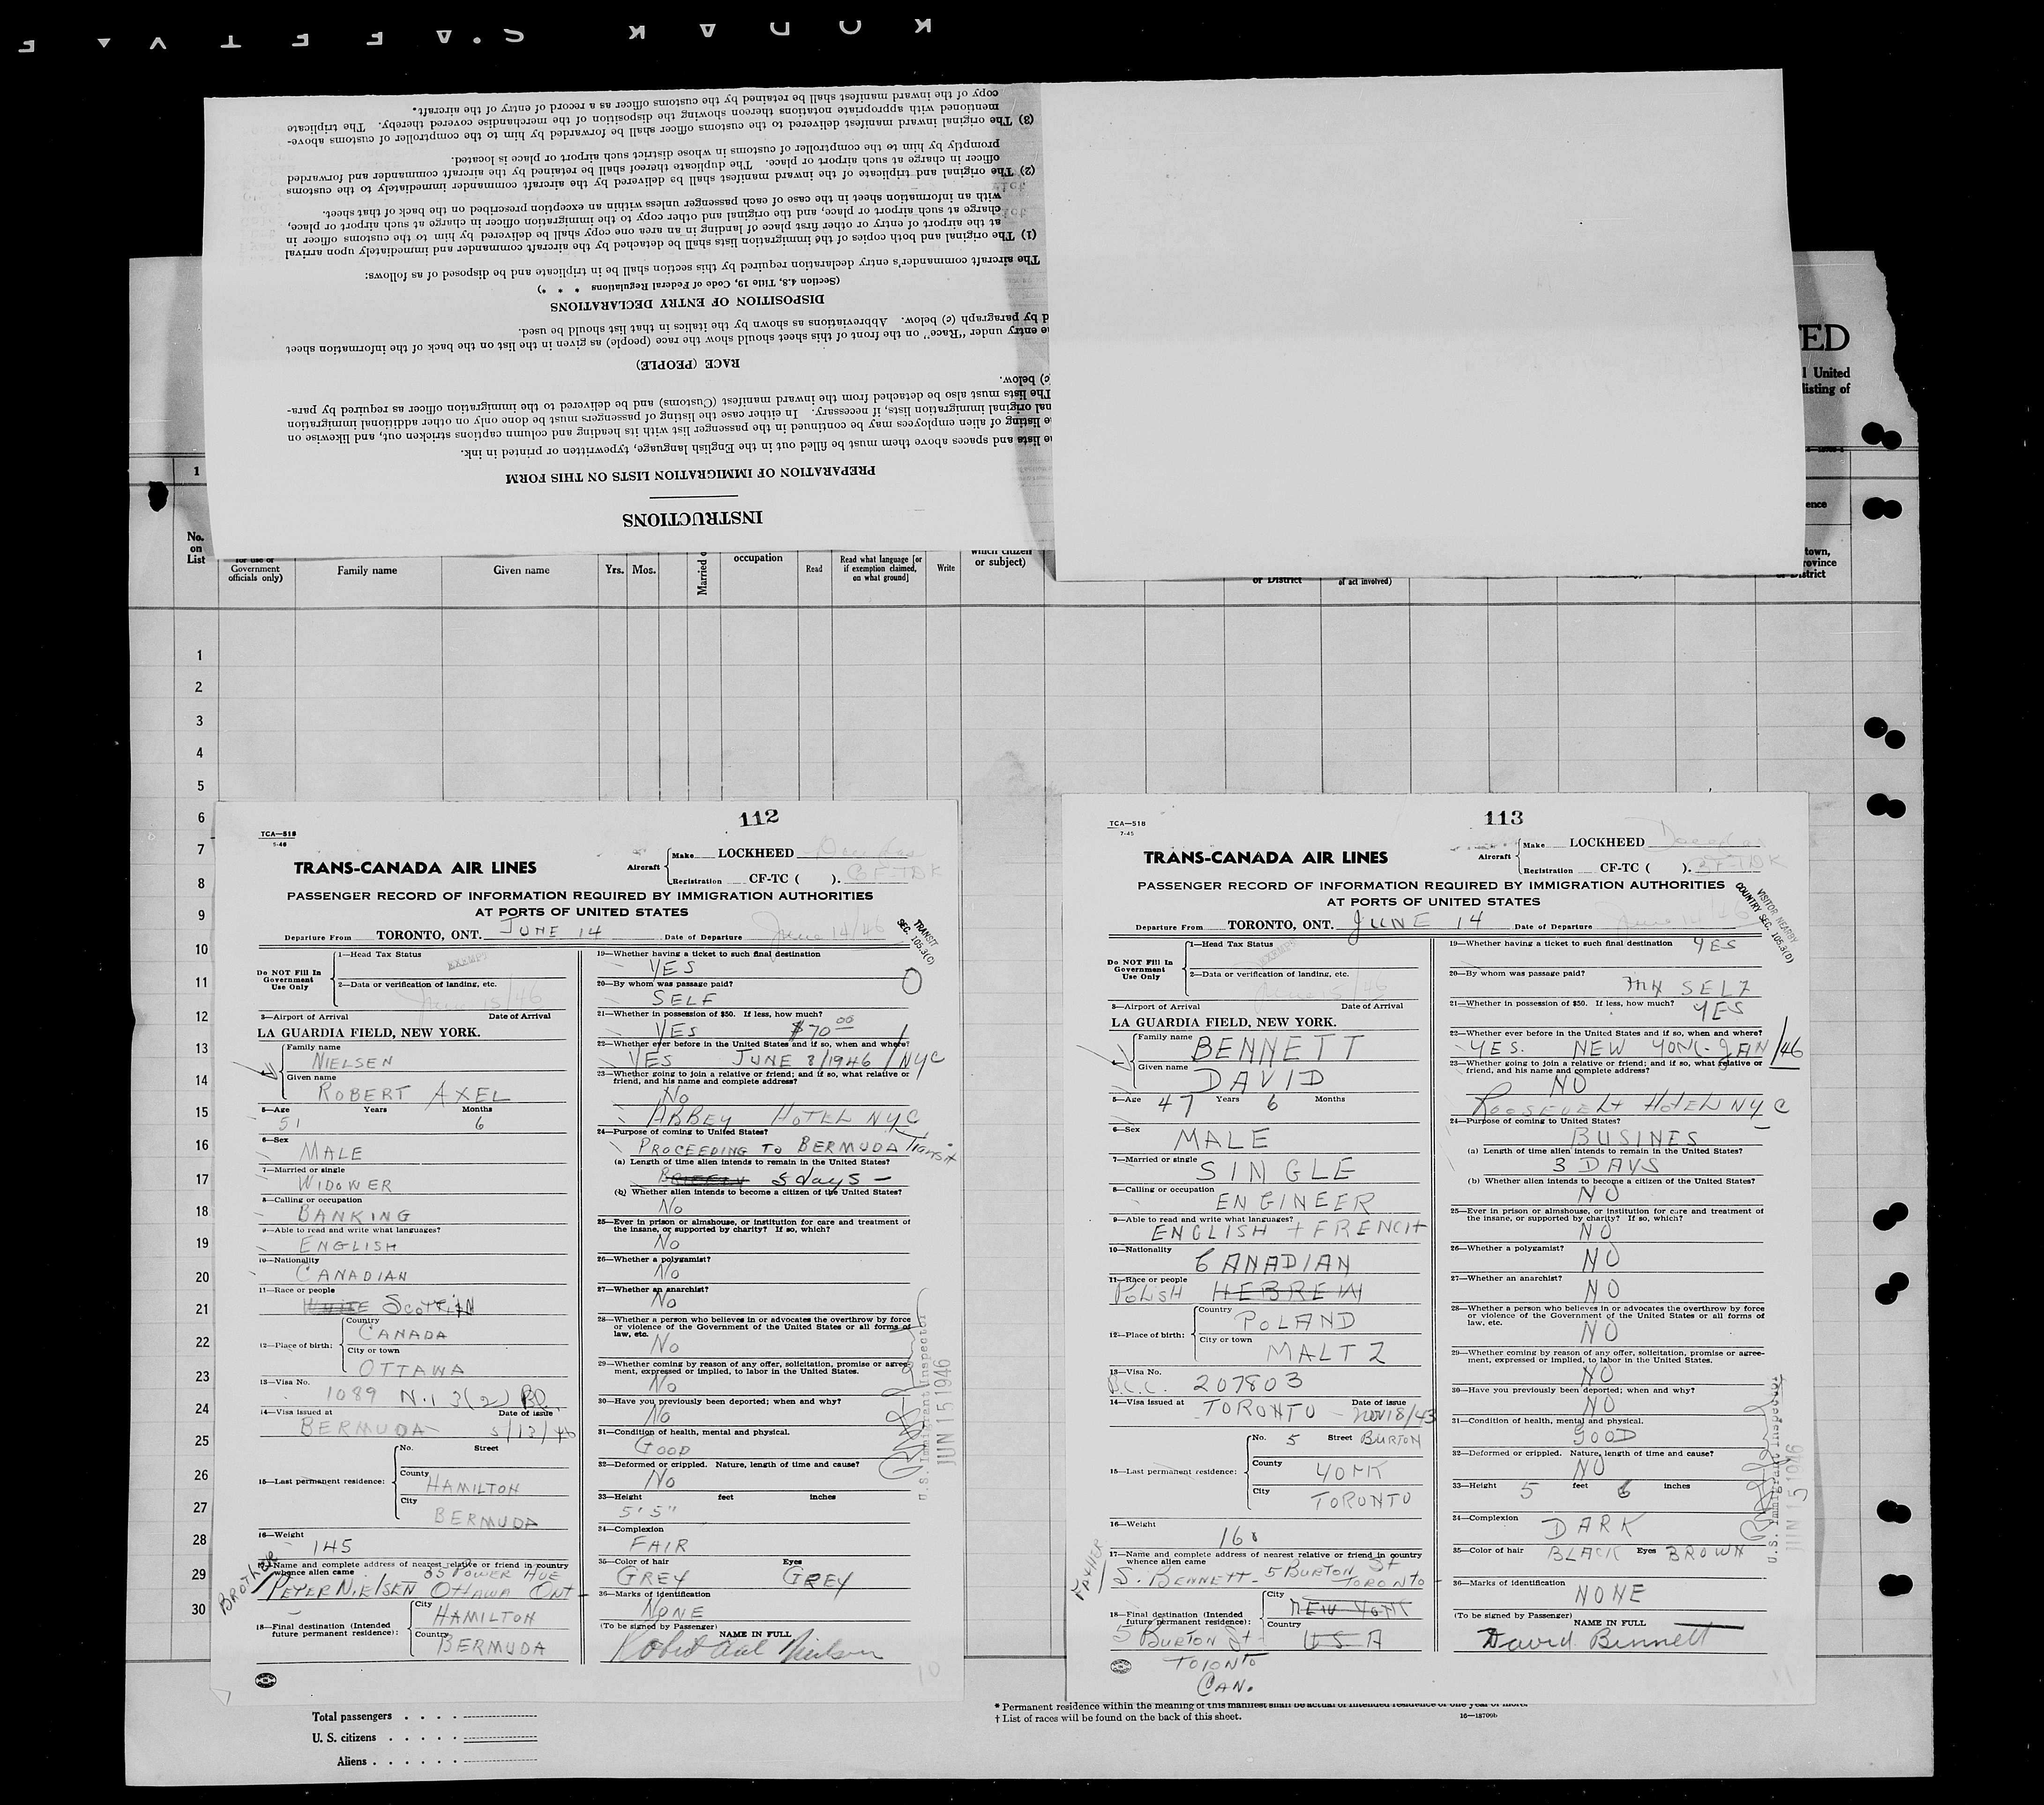 KODAK S.AFETY F
copy of the inward manifest shall be retained by the customs officer as a record of entry of the aircraft.
mentioned with appropriate notations thereon showing the disposition of the merchandise covered thereby. The triplicate
(3) The original inward manifest delivered to the customs officer shall be forwarded by him to the comptroller of customs above-
promptly by him to the comptroller of customs in whose district such airport or place is located.
officer in charge at such airport or place. The duplicate thereof shall be retained by the aircraft commander and forwarded
(2) The original and triplicate of the inward manifest shall be delivered by the aircraft commander immediately to the customs
with an information sheet in the case of each passenger unless within an exception prescribed on the back of that sheet.
charge at such airport or place, and the original and other copy to the immigration officer in charge at such airport or place,
at the airport of entry or other first place of landing in an area one copy shall be delivered by him to the customs officer in
(1) The original and both copies of the immigration lists shall be detached by the aircraft commander and immediately upon arrival
The aircraft commander's entry declaration required by this section shall be in triplicate and be disposed of as follows:
(Section 4.8, Title 19, Code of Federal Regulations * * *)
DISPOSITION OF ENTRY DECLARATIONS
d by paragraph (c) below. Abbreviations as shown by the italics in that list should be used.
e entry under "Race" on the front of this sheet should show the race (people) as given in the list on the back of the information sheet
RACE (PEOPLE)
c) below.
The lists must also be detached from the inward manifest (Customs) and be delivered to the immigration officer as required by para-
nal original immigration lists, if necessary. In either case the listing of passengers must be done only on other additional immigration
e listing of alien employees may be continued in the passenger list with its heading and column captions stricken out, and likewise on
e lists and spaces above them must be filled out in the English language, typewritten or printed in ink.
PREPARATION OF IMMIGRATION LISTS ON THIS FORM
INSTRUCTIONS
ED
l United
listing of
1
ence
No. on List
(for use of Government officials only)
Family name
Given name
Yrs. Mos.
Married o
occupation
Read
Read what language [or if exemption claimed, on what ground]
Write
which citizen or subject)
or District
of act involved)
town, rovince or District
1
2
3
4
5
6
7
8
9
10
11
12
13
14
15
16
17
18
19
20
21
22
23
24
25
26
27
28
29
30
112
TCA—518
5-46
TRANS-CANADA AIR LINES
Aircraft Make LOCKHEED Douglas
Registration CF-TC ( ). CF-TDK
PASSENGER RECORD OF INFORMATION REQUIRED BY IMMIGRATION AUTHORITIES
AT PORTS OF UNITED STATES
TRANSIT
SEC. 105.3(C)
Departure From TORONTO, ONT. JUNE 14 Date of Departure June 14/46
Do NOT Fill In Government Use Only
1—Head Tax Status
EXEMPT
2—Data or verification of landing, etc.
June 15/46
3—Airport of Arrival Date of Arrival
LA GUARDIA FIELD, NEW YORK.
Family name
NIELSEN
Given name
ROBERT AXEL
5—Age Years Months
51 6
6—Sex
MALE
7—Married or single
WIDOWER
8—Calling or occupation
BANKING
9—Able to read and write what languages?
ENGLISH
10—Nationality
CANADIAN
11—Race or people
WHITE SCOTTISH
12—Place of birth:
Country
CANADA
City or town
OTTAWA
13—Visa No.
1089 N.I 3(2)
14—Visa issued at Date of issue
BERMUDA 5/13/46
15—Last permanent residence:
No. Street
County
HAMILTON
City
BERMUDA
16—Weight
145
17—Name and complete address of nearest relative or friend in country
whence alien came
BROTHER
35 POWER AVE
PETER NIELSEN OTTAWA ONT
18—Final destination (Intended
future permanent residence):
City
HAMILTON
Country
BERMUDA
19—Whether having a ticket to such final destination
YES
20—By whom was passage paid?
SELF
21—Whether in possession of $50. If less, how much?
YES $70 00
22—Whether ever before in the United States and if so, when and where?
YES JUNE 8/1946 / NYC
23—Whether going to join a relative or friend; and if so, what relative or
friend, and his name and complete address?
No
ABBEY HOTEL NYC
24—Purpose of coming to United States?
PROCEEDING TO BERMUDA Transit
(a) Length of time alien intends to remain in the United States?
5 days —
(b) Whether alien intends to become a citizen of the United States?
No
25—Ever in prison or almshouse, or institution for care and treatment of
the insane, or supported by charity? If so, which?
No
26—Whether a polygamist?
No
27—Whether an anarchist?
No
28—Whether a person who believes in or advocates the overthrow by force
or violence of the Government of the United States or all forms of
law, etc.
No
29—Whether coming by reason of any offer, solicitation, promise or agree-
ment, expressed or implied, to labor in the United States.
No
30—Have you previously been deported; when and why?
No
31—Condition of health, mental and physical.
GOOD
32—Deformed or crippled. Nature, length of time and cause?
No
33—Height feet inches
5' 5"
34—Complexion
FAIR
35—Color of hair Eyes
GREY GREY
36—Marks of identification
NONE
(To be signed by Passenger) NAME IN FULL
Robert Axel Nielsen
U.S. Immigrant Inspector
JUN 15 1946
10
113
TCA—518
7-45
TRANS-CANADA AIR LINES
Aircraft Make LOCKHEED Douglas
Registration CF-TC ( ). CF-TDK
PASSENGER RECORD OF INFORMATION REQUIRED BY IMMIGRATION AUTHORITIES
AT PORTS OF UNITED STATES
VISITOR NEARBY
COUNTRY SEC. 105.3(D)
Departure From TORONTO, ONT. JUNE 14 Date of Departure June 14/46
Do NOT Fill In Government Use Only
1—Head Tax Status
EXEMPT
2—Data or verification of landing, etc.
June 15/46
3—Airport of Arrival Date of Arrival
LA GUARDIA FIELD, NEW YORK.
Family name
BENNETT
Given name
DAVID
5—Age 47 Years 6 Months
6—Sex
MALE
7—Married or single
SINGLE
8—Calling or occupation
ENGINEER
9—Able to read and write what languages?
ENGLISH + FRENCH
10—Nationality
CANADIAN
11—Race or people
POLISH HEBREW
12—Place of birth:
Country
POLAND
City or town
MALTZ
13—Visa No.
B.C.C. 207803
14—Visa issued at Date of issue
TORONTO - NOV 18/43
15—Last permanent residence:
No. 5 Street BURTON
County
YORK
City
TORONTO
16—Weight
17—Name and complete address of nearest relative or friend in country
whence alien came
FATHER
S. BENNETT - 5 BURTON St
TORONTO
18—Final destination (Intended
future permanent residence):
City
NEW YORK
Country
USA
5 BURTON St
TORONTO
CAN.
19—Whether having a ticket to such final destination YES
20—By whom was passage paid?
MY SELF
21—Whether in possession of $50. If less, how much?
YES
22—Whether ever before in the United States and if so, when and where?
YES. NEW YORK - JAN /46
23—Whether going to join a relative or friend; and if so, what relative or
friend, and his name and complete address?
NO
ROOSEVELT HOTEL NYC
24—Purpose of coming to United States?
BUSINES
(a) Length of time alien intends to remain in the United States?
3 DAYS
(b) Whether alien intends to become a citizen of the United States?
NO
25—Ever in prison or almshouse, or institution for care and treatment of
the insane, or supported by charity? If so, which?
NO
26—Whether a polygamist?
NO
27—Whether an anarchist?
NO
28—Whether a person who believes in or advocates the overthrow by force
or violence of the Government of the United States or all forms of
law, etc.
NO
29—Whether coming by reason of any offer, solicitation, promise or agree-
ment, expressed or implied, to labor in the United States.
NO
30—Have you previously been deported; when and why?
NO
31—Condition of health, mental and physical.
GOOD
32—Deformed or crippled. Nature, length of time and cause?
NO
33—Height 5 feet 6 inches
34—Complexion
DARK
35—Color of hair BLACK Eyes BROWN
36—Marks of identification
NONE
(To be signed by Passenger)
NAME IN FULL
David Bennett
U.S. Immigrant Inspector
JUN 15 1946
11
Total passengers . . . .
U. S. citizens . . . . .
Aliens . . . . .
* Permanent residence within the meaning of this manifest shall be actual or intended residence of one year or more.
† List of races will be found on the back of this sheet.
16—18709b